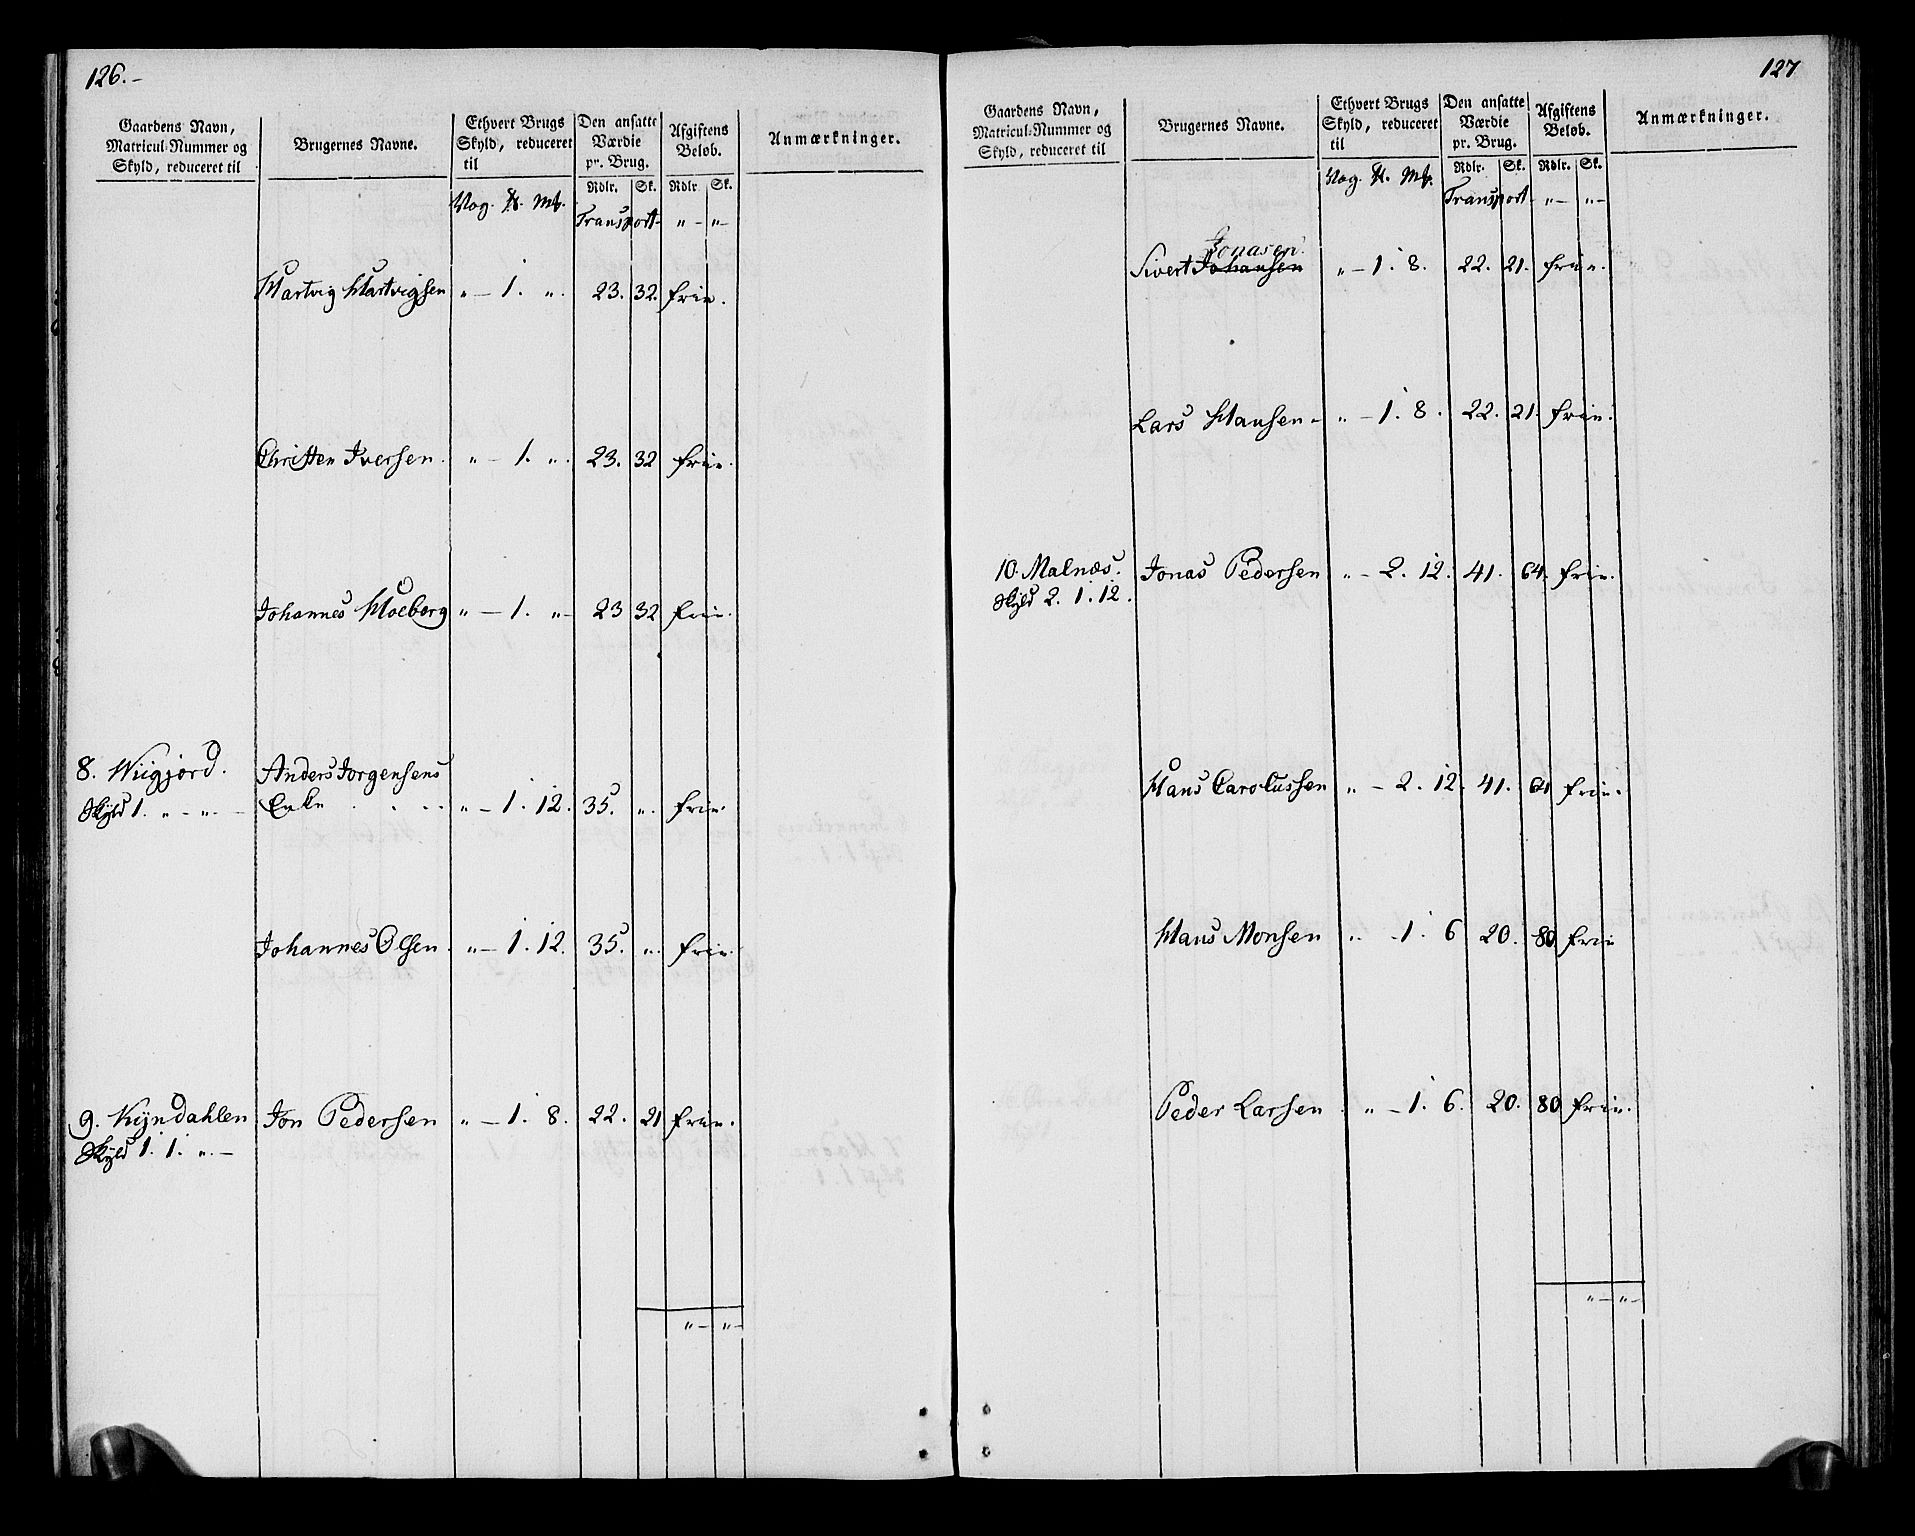 126.-
Gaardens Navn, Matricul-Nummer og Skyld, reduceret til
Brugernes Navne.
Ethvert Brugs Skyld, reduceret til
Den ansatte Værdie pr. Brug.
Afgiftens Beløb.
Anmærkninger.
Rdlr. Sk. Rdlr. Sk.
Vog. ℔. Mk.
Transport- „ - „ -
Hartvig Hartvigsen „ - 1. „. 23. 32. frie.
Christen Iversen. „ - 1. „. 23. 32 frie.
Johannes Hoeborg „ - 1. „ - 23 32 frie.
8. Wiigjord. Anders Jorgensens
Skyld 1. „ - „ - Enke „ - 1. 12. 35. „. frie
Johannes Olsen. „ - 1. 12. 35. „. frie.
9. Kyndahlen Jon Pedersen „ - 1. 8. 22. 21 frie.
Skyld 1. 1. „. -
„ - „ -
127
Gaardens Navn, Matricul-Nummer og Skyld, reduceret til
Brugernes Navne.
Ethvert Brugs Skyld, reduceret til
Den ansatte Værdie pr. Brug.
Afgiftens Beløb.
Anmærkninger.
Rdlr. Sk. Rdlr. Sk.
Vog. ℔. Mk.
Transport- „ - „ -
Jonasen.
Sivert Johansen „ - 1. 8. 22. 21. frie.
Lars Hansen - „ - 1. 8. 22. 21. frie.
10. Malnæs. Jonas Pedersen „ - 2. 12. 41. 64. frie.
Skyld 2. 1. 12.
Hans Carolussen „ - 2. 12. 41. 64 frie.
Hans Monsen „ - 1. 6 20. 80 frie
Peder Larsen „ - 1. 6. 20. 80 frie.
„ - „ -